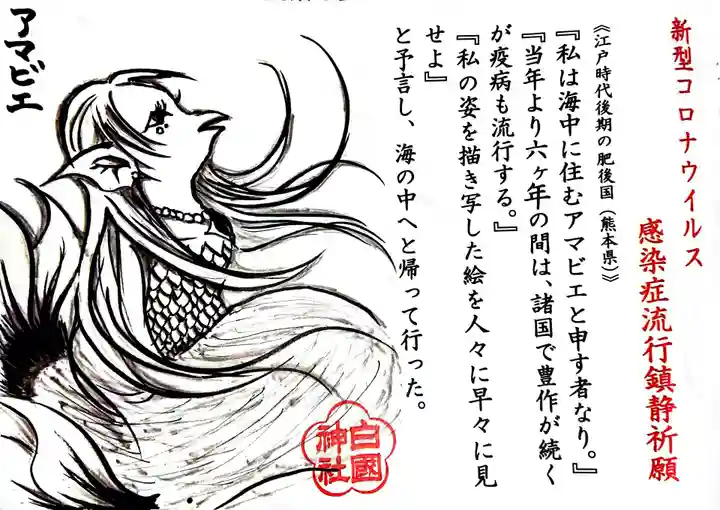 新型コロナウイルス
感染症流行鎮静祈願
《江戸時代後期の肥後国（熊本県）》
『私は海中に住むアマビエと申す者なり。』
『当年より六ヶ年の間は、諸国で豊作が続く
が疫病も流行する。』
『私の姿を描き写した絵を人々に早々に見
せよ』
と予言し、海の中へと帰って行った。
アマビエ
白國
神社